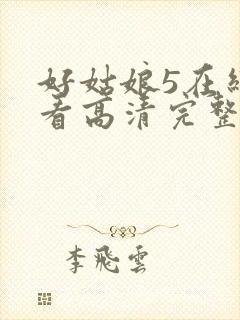 好姑娘5在
看高清完整
李飛雲